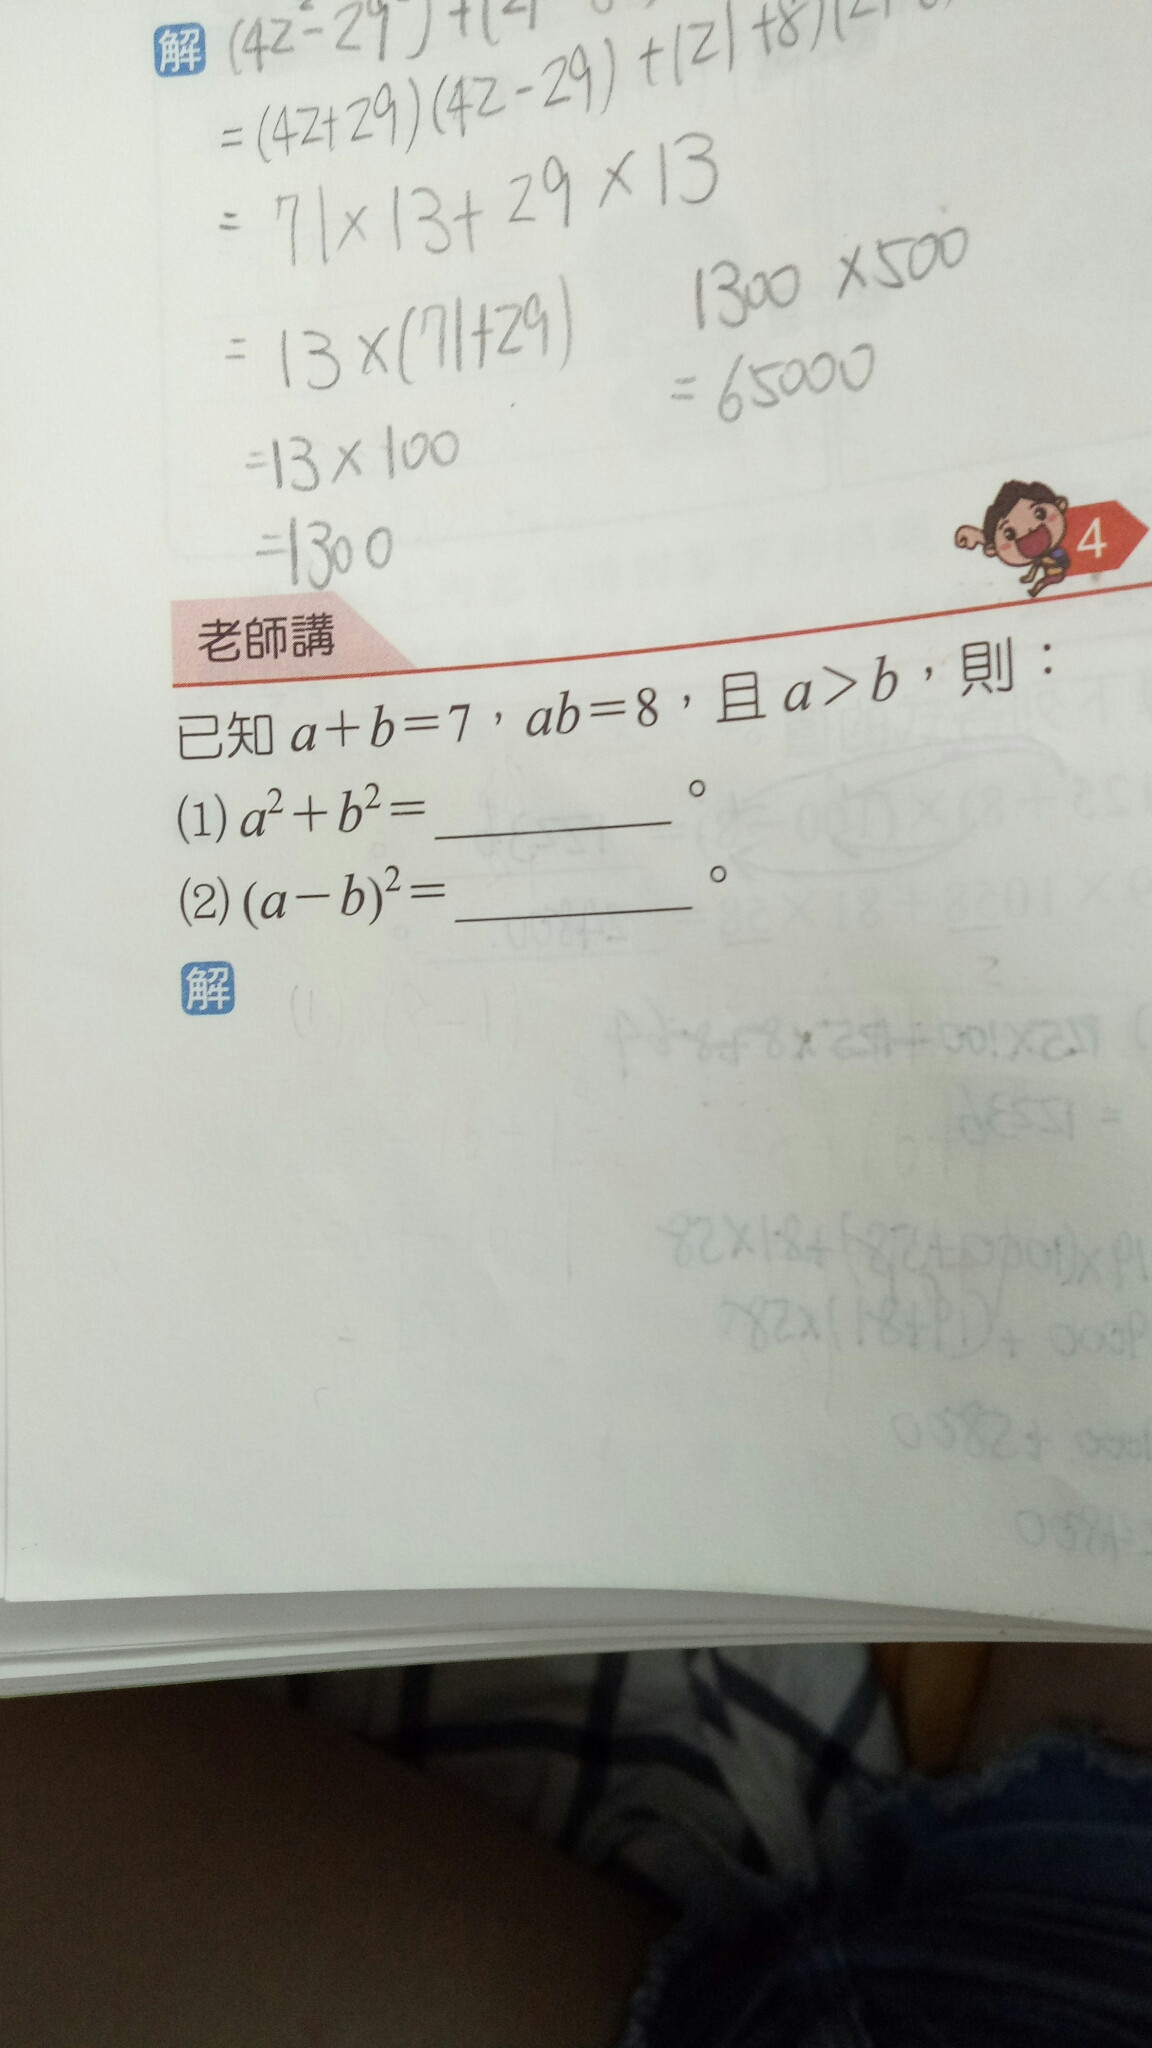 解 (42²-29²)+(21
=(42+29)(42-29)+(21+8)(21
= 71×13+29×13
= 13×(71+29)
=13×100
=1300
1300×500
=65000
4
老師講
已知 a+b=7，ab=8，且 a>b，則：
(1) a²+b²=________。
(2) (a-b)²=________。
解